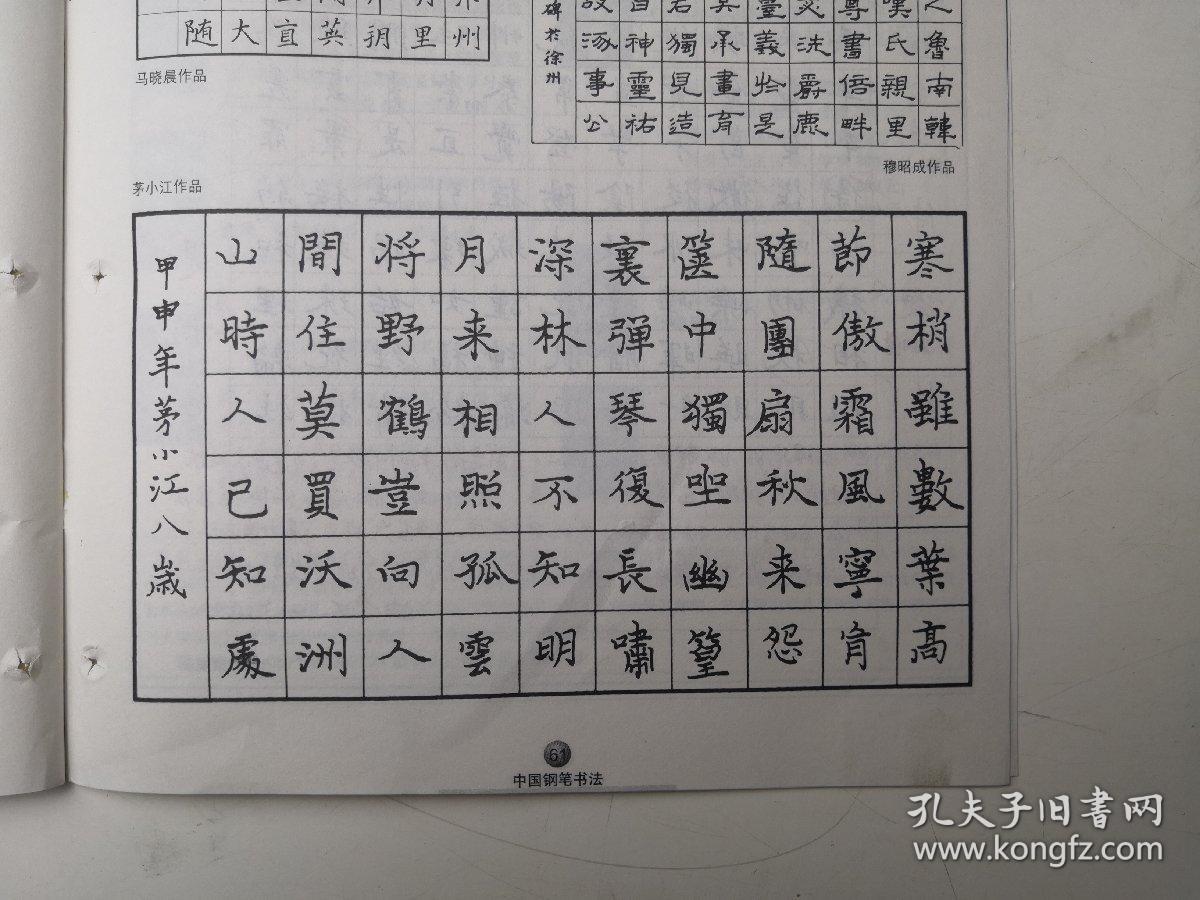 州
里
英
直
大
随
马晓晨作品
魯南韓
氏親里
尊書倍畔
洗爵鹿
臺義於是
承畫育
君獨見造
自神靈祐
故涿事公
碑於徐州
穆昭成作品
茅小江作品
寒梢雖數葉高
節傲霜風寧肯
隨團扇秋来怨
篋中獨坐幽篁
裏彈琴復長嘯
深林人不知明
月来相照孤雲
将野鶴豈向人
間住莫買沃洲
山時人已知處
甲申年茅小江八歳
61
中国钢笔书法
孔夫子旧书网
www.kongfz.com